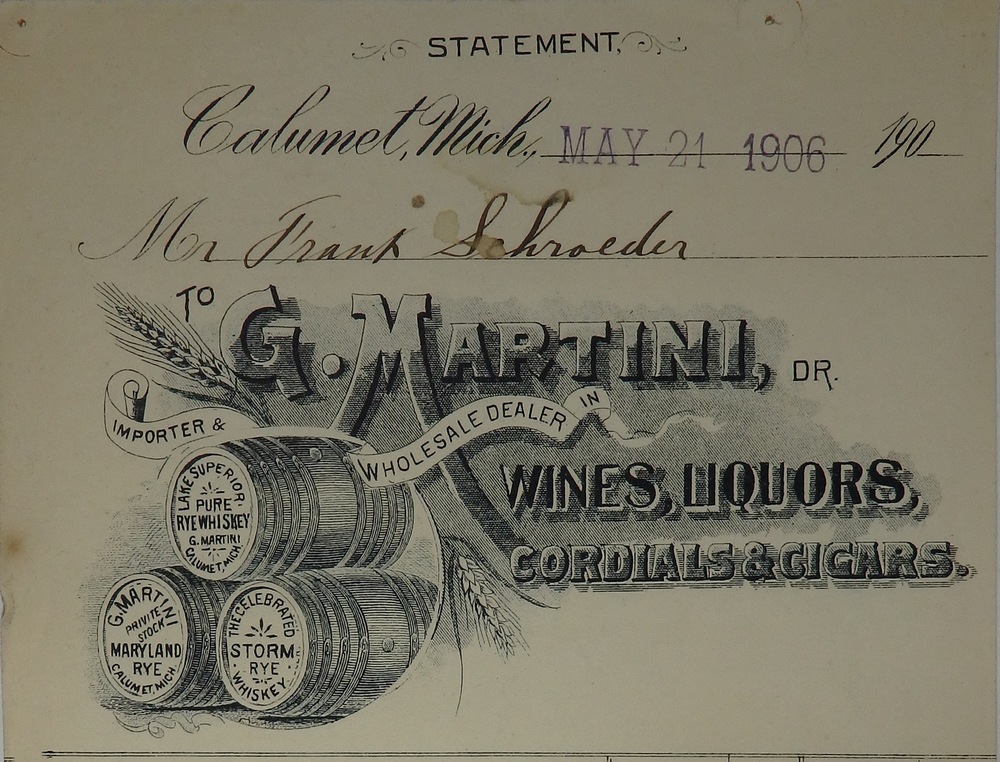 STATEMENT,
Calumet, Mich., MAY 21 1906 190
Mr Frank Schroeder
TO G. MARTINI, DR.
IMPORTER & WHOLESALE DEALER IN
WINES, LIQUORS,
CORDIALS & CIGARS.
LAKE SUPERIOR
PURE
RYE WHISKEY
G. MARTINI
CALUMET, MICH.
G. MARTINI
PRIVITE
STOCK
MARYLAND
RYE
CALUMET, MICH
THE CELEBRATED
STORM
RYE
WHISKEY